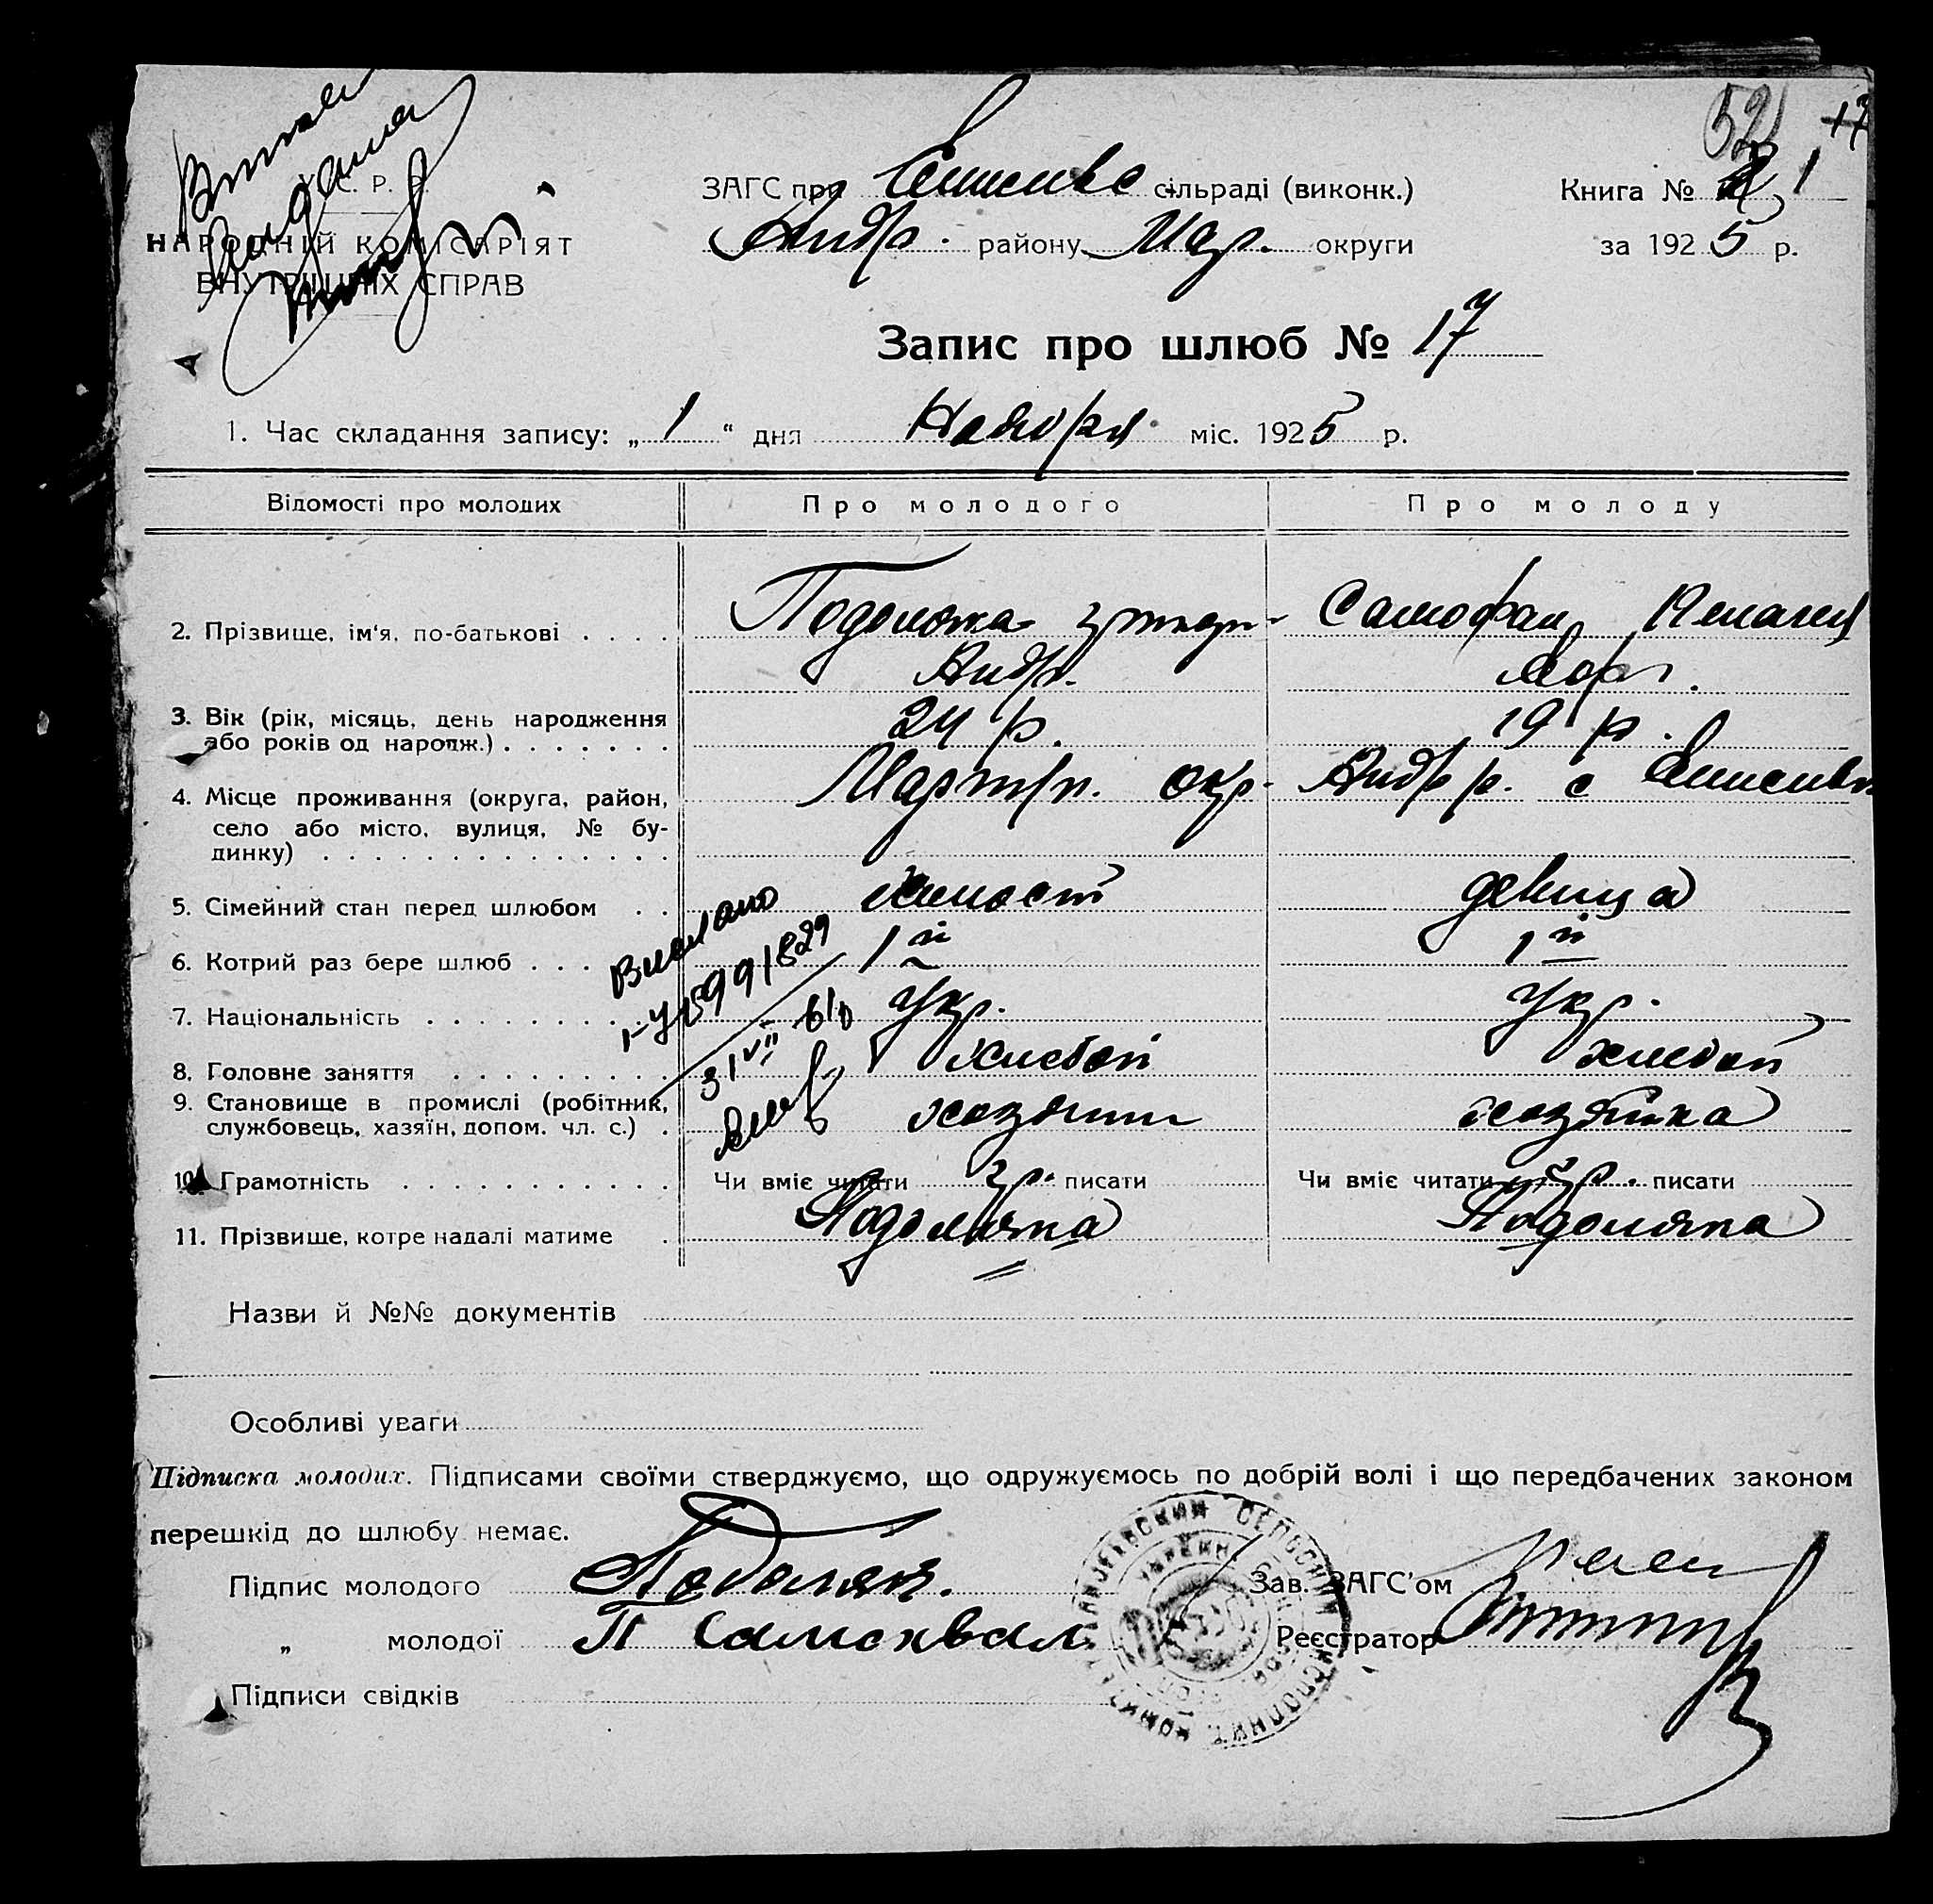 52 17
У. С. Р. Р.
НАРОДНІЙ КОМІСАРІЯТ
ВНУТРІШНІХ СПРАВ
ЗАГС при сільраді (виконк.)
Андр. району Мар. округи
Книга № 1
за 1925 р.
Запис про шлюб № 17
1. Час складання запису: „ 1 “ дня Ноября міс. 1925 р.
Відомості про молодих Про молодого Про молоду
2. Прізвище, ім'я, по-батькові . . . .
Андр.
3. Вік (рік, місяць, день народження
або років од народж.) . . . . . . . 24 р. 19 р.
4. Місце проживання (округа, район,
село або місто, вулиця, № бу-
динку) . . . . . . . . . . . . . .
Марiуп. окр. Андр р. с
5. Сімейний стан перед шлюбом . . холост девица
6. Котрий раз бере шлюб . . . 1й 1й
7. Національність . . . . . . . . . Укр. Укр.
8. Головне заняття . . . . . . . . . хлебоп хлебоп
9. Становище в промислі (робітник,
службовець, хазяїн, допом. чл. с.) . хозяин хозяйка
10. Грамотність . . . . . . . . . . . Чи вміє читати гр. писати Чи вміє читати гр. писати
11. Прізвище, котре надалі матиме . Подоляка Подоляка
Назви й №№ документів
Особливі уваги
Підписка молодих. Підписами своїми стверджуємо, що одружуємось по добрій волі і що передбачених законом
перешкід до шлюбу немає.
Підпис молодого Подоляк. Зав. ЗАГС'ом
„ молодої П Самохвал Реєстратор
Підписи свідків